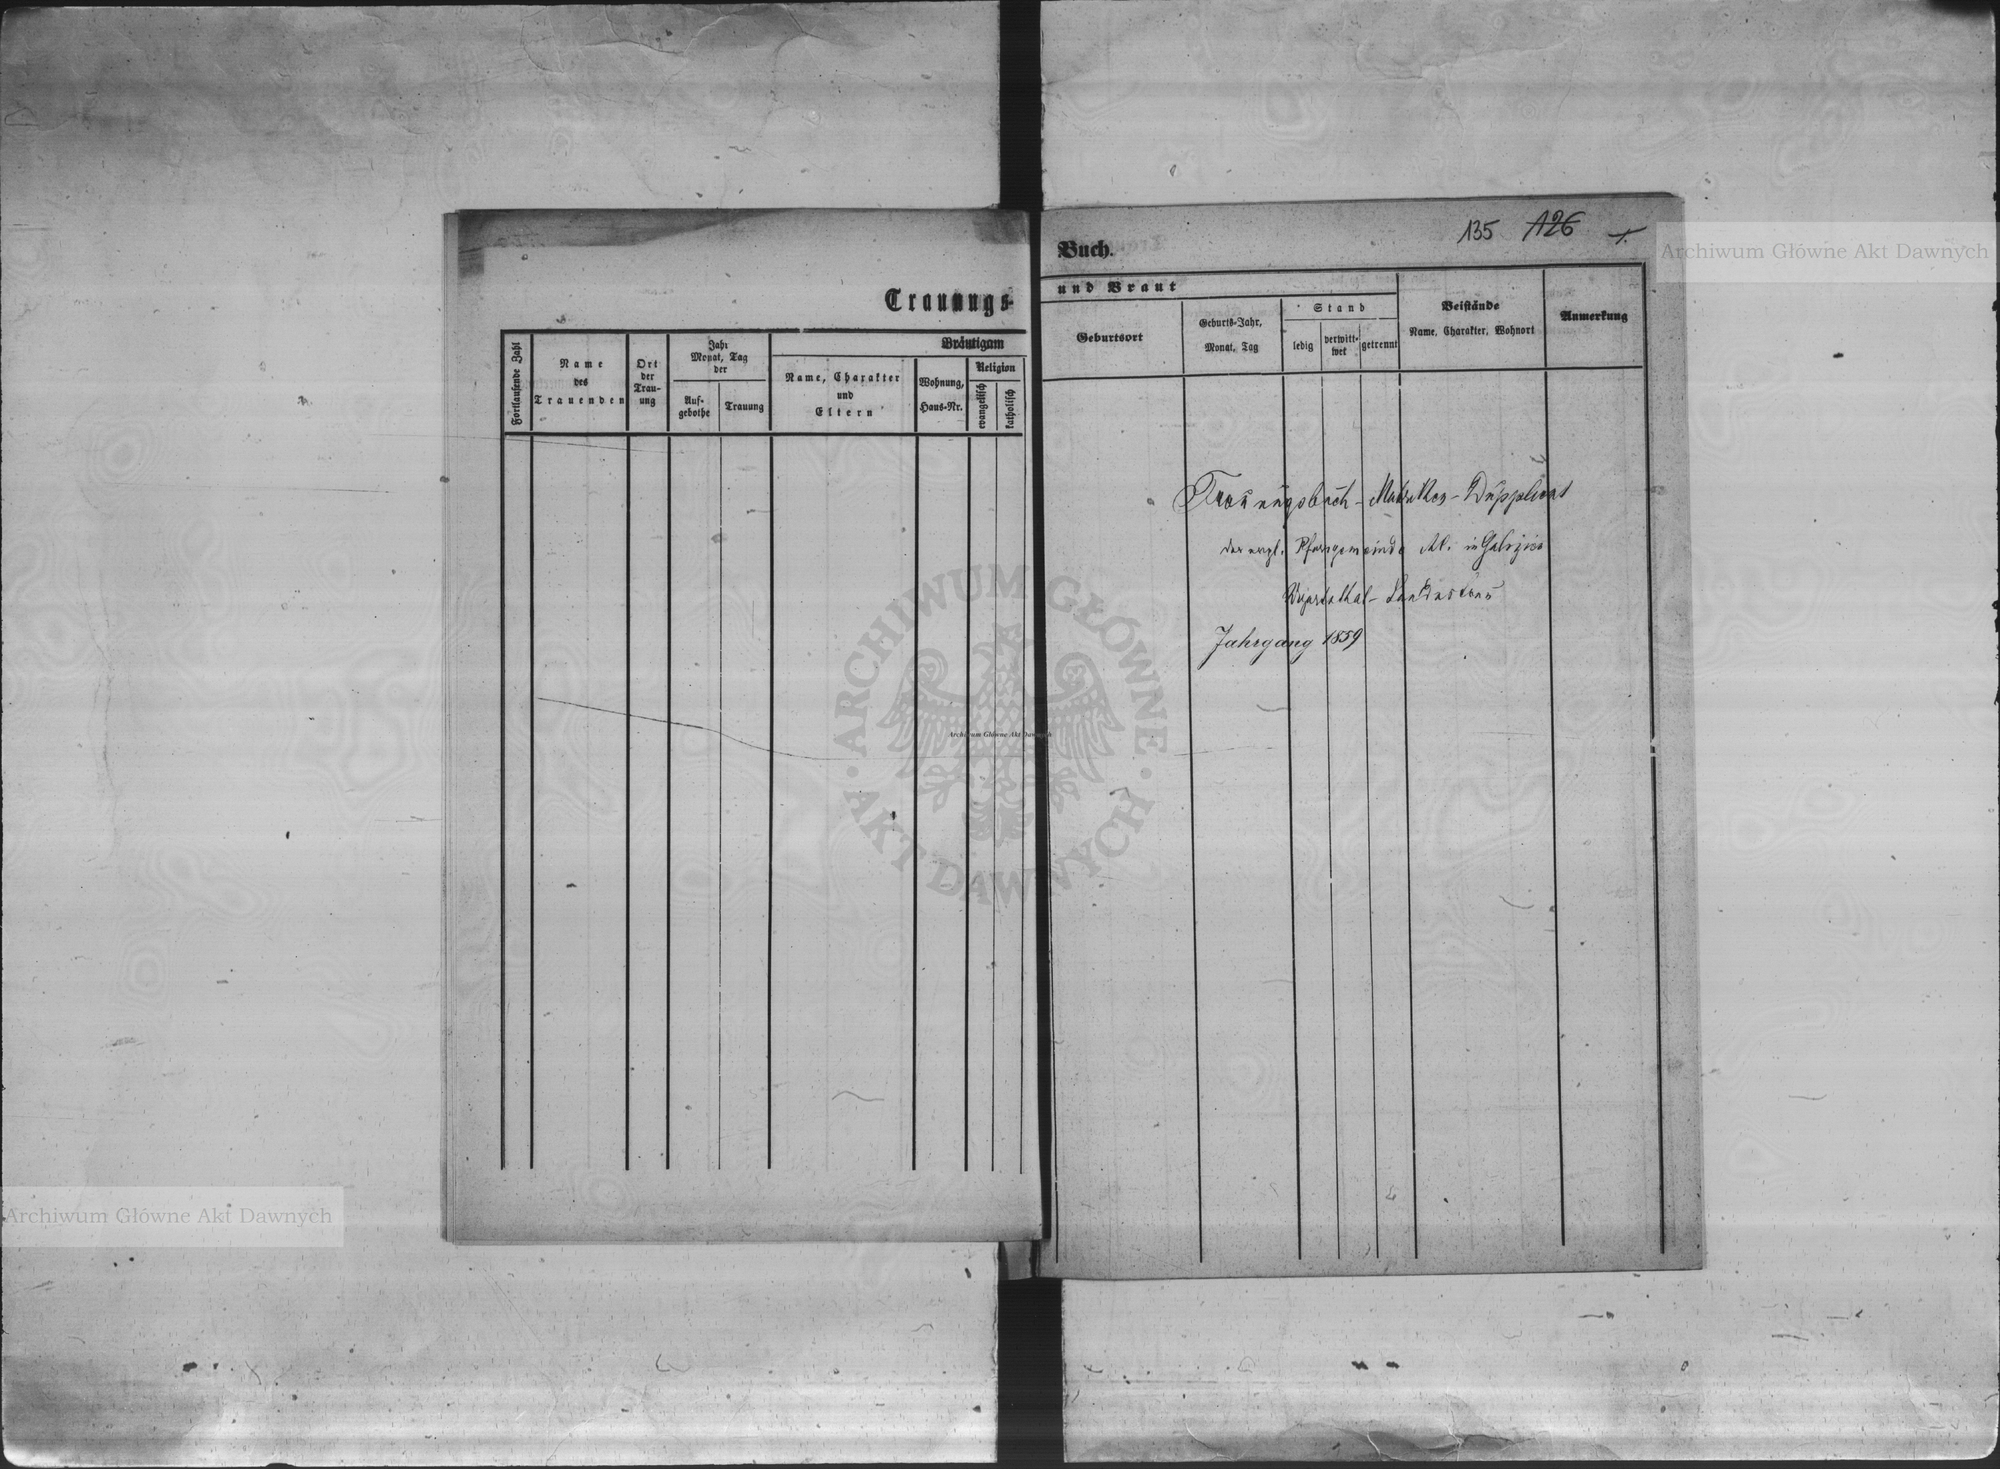 Archiwum Główne Akt Dawnych
Trauungs-
Fortlaufende Zahl
Name
des
Trauenden
Ort
der
Trau-
ung
Jahr
Monat, Tag
der
Auf-
gebothe
Trauung
Bräutigam
Name, Charakter
und
Eltern
Wohnung,
Haus-Nr.
Religion
evangelisch
katholisch
135 126
Buch.
und Braut
Geburtsort
Geburts-Jahr,
Monat, Tag
Stand
ledig
verwitt-
wet
getrennt
Beistände
Name, Charakter, Wohnort
Anmerkung
Trauungsbuch-Matriken-Dupplicat
der evgl. Pfarrgemeinde in Galizien
Jahrgang 1859
ARCHIWUM GŁÓWNE
AKT DAWNYCH
Archiwum Główne Akt Dawnych
Archiwum Główne Akt Dawnych